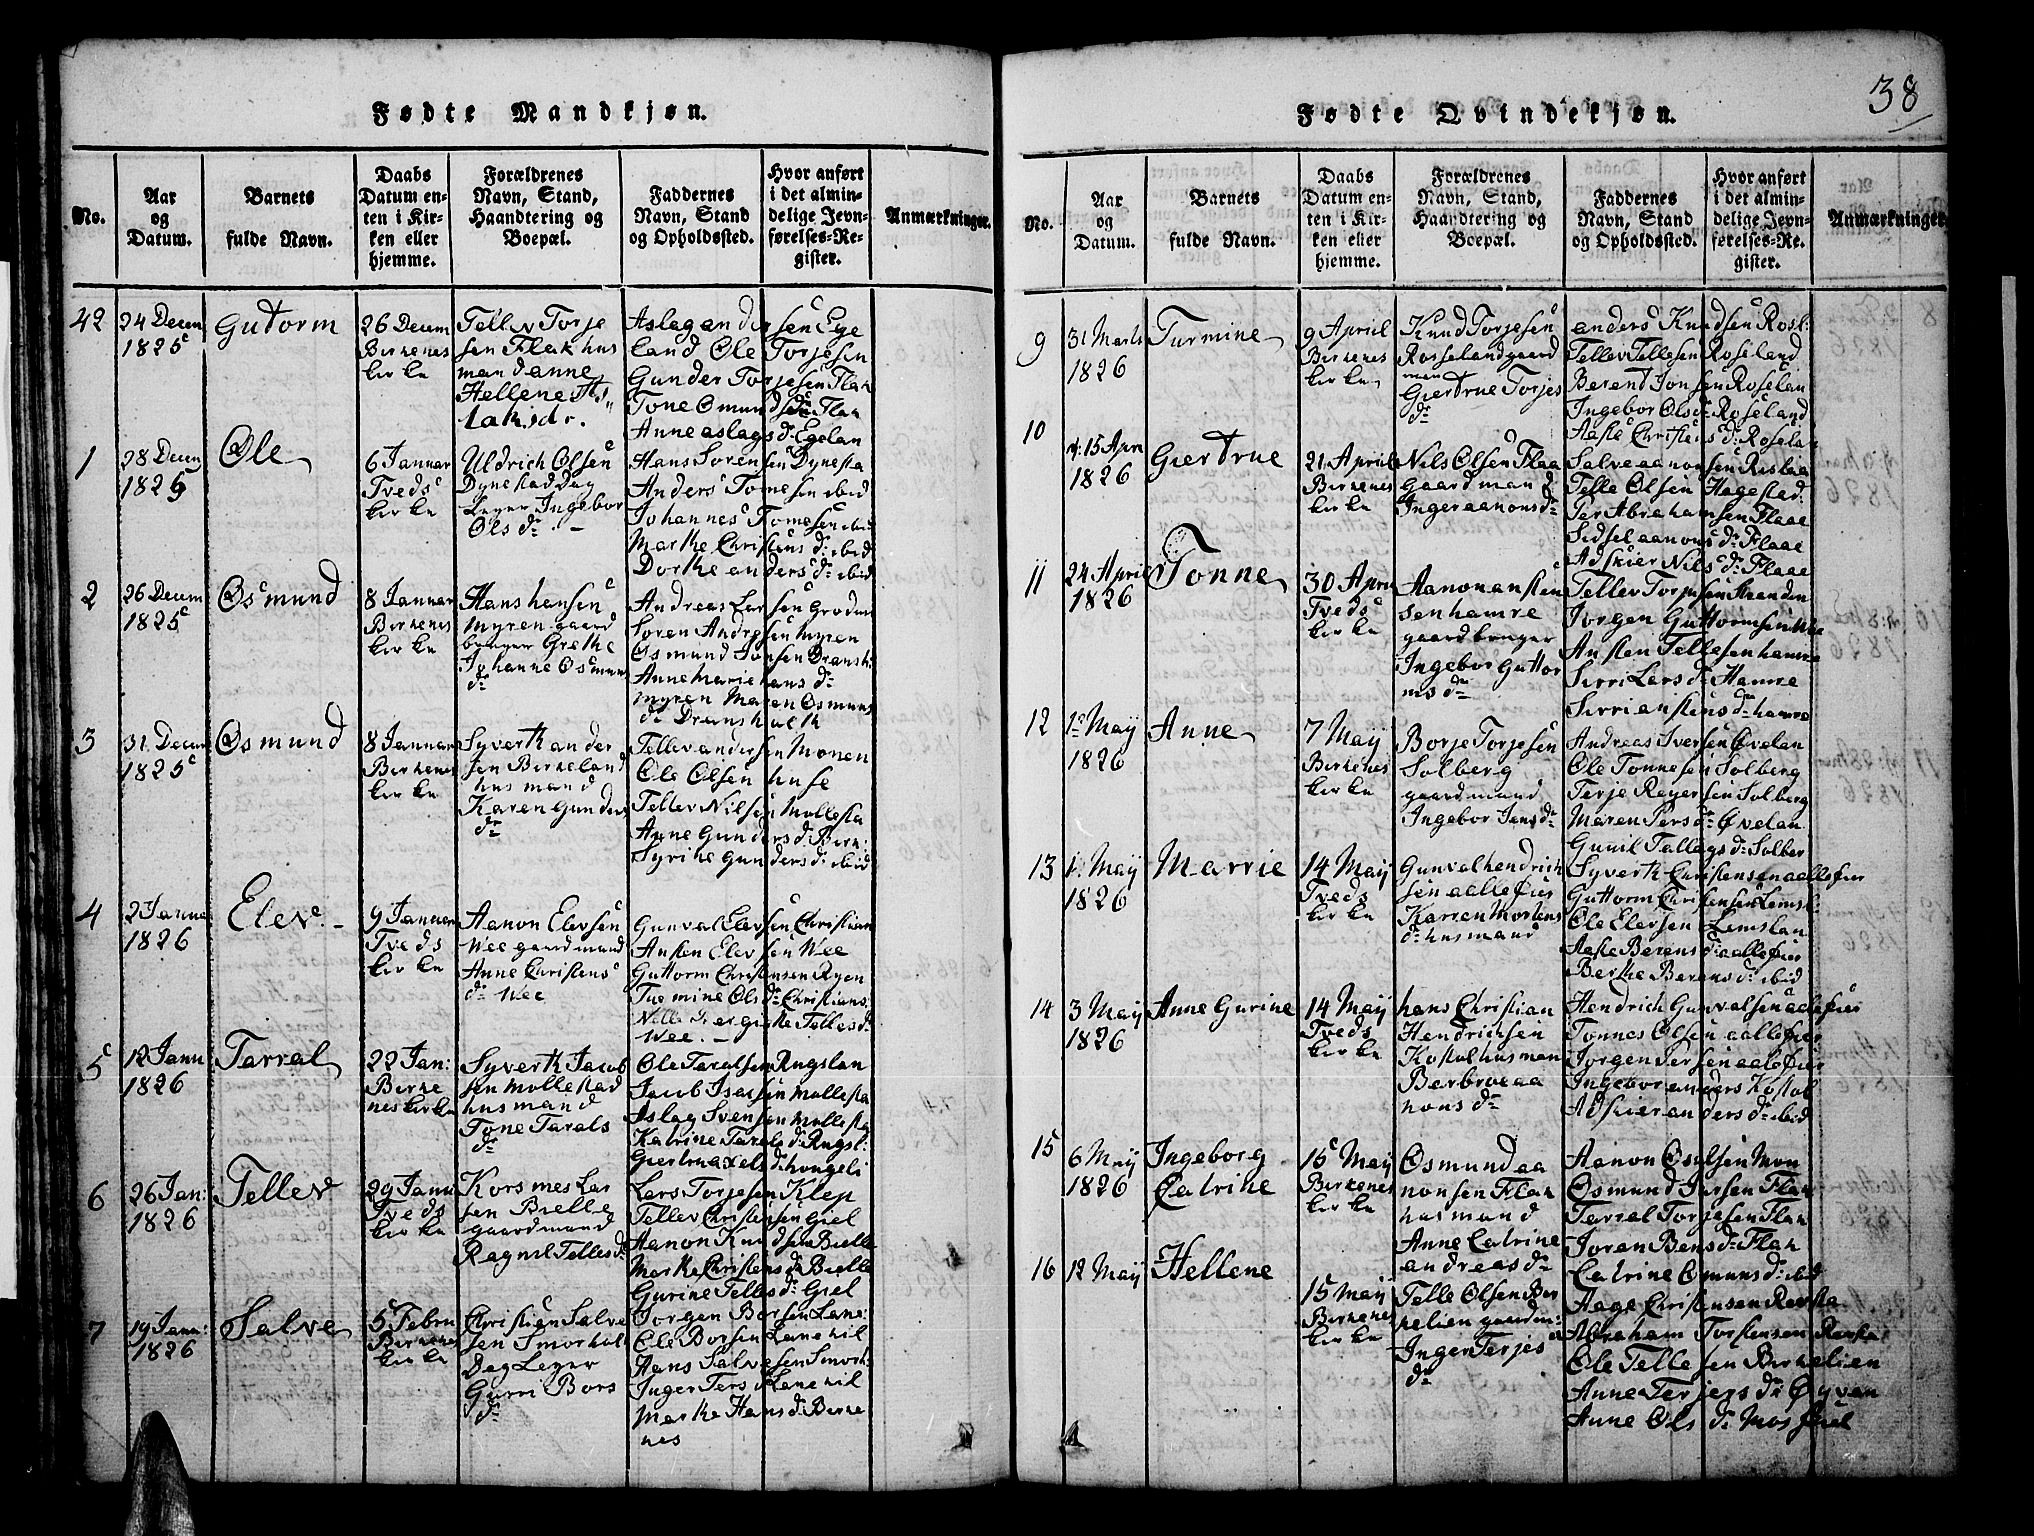 38
Fødte Mandkjøn.
No.
Aar
og
Datum.
Barnets
fulde Navn.
Daabs
Datum en-
ten i Kir-
ken eller
hjemme.
Forældrenes
Navn, Stand,
Haandtering og
Boepæl.
Faddernes
Navn, Stand
og Opholdssted.
Hvor anført
i det almin-
delige Jevn-
førelses-Re-
gister.
Anmærkninger.
42
24 Decem
1825
Gutorm
26 Decem
Birkenes
kirke
Tellev Torje
sen Flak hus
mand anne
Hellene
Aslag andersen Ege
land Ole Torjesen
Gunder Torjesen Flak
Tone Omunds dr Flak
Anne aslags dr Egelan
1
28 Decem
1825
Ole
6 Januar
Tveds
kirke
Uldrich Olsen
Dynestad Dag
Leger Ingebor
Ols dr
Hans Sørensen Dynesta
Anders Tomesen ibid
Johannes Tomesen ibid
Marthe Christens dr ibid
Dorthe anders dr ibid
2
26 Decem
1825
Osmund
8 Januar
Birkenes
kirke
Hans hansen
myren gaard
bruger Grethe
Johanne Osmun
dr
Andreas Larsen Groden
Søren Andresen Myren
Osmund Jonsen Dransh:
Anne Marie hans dr
myren Maren Osmuns
dr Dransholth
3
31 Decem
1825
Osmund
8 Januar
Birkenes
kirke
Syverth ander
sen Birkeland
husmand
Karen Gunders
dr
Tellev andersen Monen
Ole Olsen huse
Tellev Nilsen Mollesta
Anne Gunders dr Berk:
Syrihe Gunders dr ibid
4
2 Janua
1826
Elev
9 Januar
Tveds
kirke
Aanon Elevsen
Wee gaardmand
Anne Christens
dr Wee
Gunval Elevsen Christian
Ansten Elevsen Wee
Guttorm Christensen Ryen
Tuemine Ols dr Christians:
Telles dr
Wee.
5
12 Janu
1826
Tarral
22 Jan:
Birke
nes kirke
Syverth Jacob
sen Mollestad
husmand
Tone Tarals
dr
Ole Taralsen Rugslan
Jacob Isacsen Mollesta
Aslag Svensen Mollesta
Katrine Tarals dr Rugsl:
Giertru axels dr
6
26 Jan:
1826
Tellev
29 Janu
Tveds
kirke
Kors mes Lar
sen Bielle
gaardmand
Ragnil Telles dr
Lars Torjesen Klep
Tellev Christensen Giel
Aanon Knudsen Bielle
Marthe Christens dr Bielle
Gurine Telles dr Giel
7
19 Janu:
1826
Salve
5 Febru
Birkenes
kirke
Christen Salve
sen Smorhol
Dag Leger
Gurri Bors
dr
Jorgen Borsen Lane:
Ole Borsen Lanekil
Hans Salvesen Smorh:
Inger Ters dr Lanekil
Marthe Hans dr Birke
nes
Fødte Qvindekjøn.
No.
Aar
og
Datum.
Barnets
fulde Navn.
Daabs
Datum en-
ten i Kir-
ken eller
hjemme.
Forældrenes
Navn, Stand,
Haandtering og
Boepæl.
Faddernes
Navn, Stand
og Opholdssted.
Hvor anført
i det almin-
delige Jevn-
førelses-Re-
gister.
Anmærkninger
9
31 Marts
1826
Turmine
9 April
Birkenes
kirke
Knud Torjesen
Rosseland gaard
man
Giertrue Torjes
dr
anders Knudsen Rosl:
Tellev Tellesen Roseland
Berent Jonsen Roselan
Ingebor Ols dr Roseland
Aaste Christens dr Roselan
10
15 Apri
1826
Giertrue
21 April
Birkenes
kirke
Nils Olsen Flaa
gaardmand
Inger aanons dr
Salve aanonsen Rislaa
Telle Olsen Hagestad
Ter Abrahamsen Flaae
Sidsel aanons dr Flaae
Adskier Nils dr Flaae
11
24 April
1826
Tonne
30 Apri
Tveds
kirke
Aanon ansten
sen hamre
gaardbruger
Ingebor Guttor
ms dr
Tellev Torjesen
Jorgen Guttormsen
Ansten Tellesen hamre
Sirri Lars dr Hamre
Sirri anstens dr hamre
12
1 May
1826
Anne
7 May
Birkenes
kirke
Borje Torjesen
Solberg
gaardmand
Ingebor Jens dr
Andreas Iversen Øvelan
Ole Tonnesen Solberg
Terje Reyersen Solberg
Maren Ters dr Øvelan
Gunil Tallags dr Solber
13
1 May
1826
Marrie
14 May
Tveds
kirke
Gunval hendrich
sen aallefier
Karren Mortens
dr husmand
Syverth Christensen aallefier
Guttorm Christensen Lemsl:
Ole Elevsen Lemslan
Aaste Berens dr aallefier
Berthe Berens dr ibid
14
3 May
1826
Anne Gurine
14 May
Tveds
kirke
hans Christian
Hendrichsen
Kostol husman
Berbroe aa
nons dr
Hendrich Gunvalsen aalefier
Tonnes Olsen aallefier
Jorgen Jersen aalefier
Ingebor anders Kostol
Adskier anders dr ibid
15
6 May
1826
Ingeborg
Catrine
15 May
Birkenes
kirke
Osmund aa
nonsen Flak
husmand
Anne Catrine
andreas dr
Aanon Osulsen Mon
Osmund Jersen Flak
Tarral Torjesen Flak
Joren Bens dr Flak
Catrine Omuns dr ibid
16
12 May
Hellene
15 May
Birkenes
kirke
Telle Olsen Ber
kelien gaardm
Inger Terjes
dr
Aage Christensen Rersta
Abraham Torstensen Rersta
Ole Tellesen Birkelien
Anne Terjers dr Øyven
Anne Ols dr Mosfiel